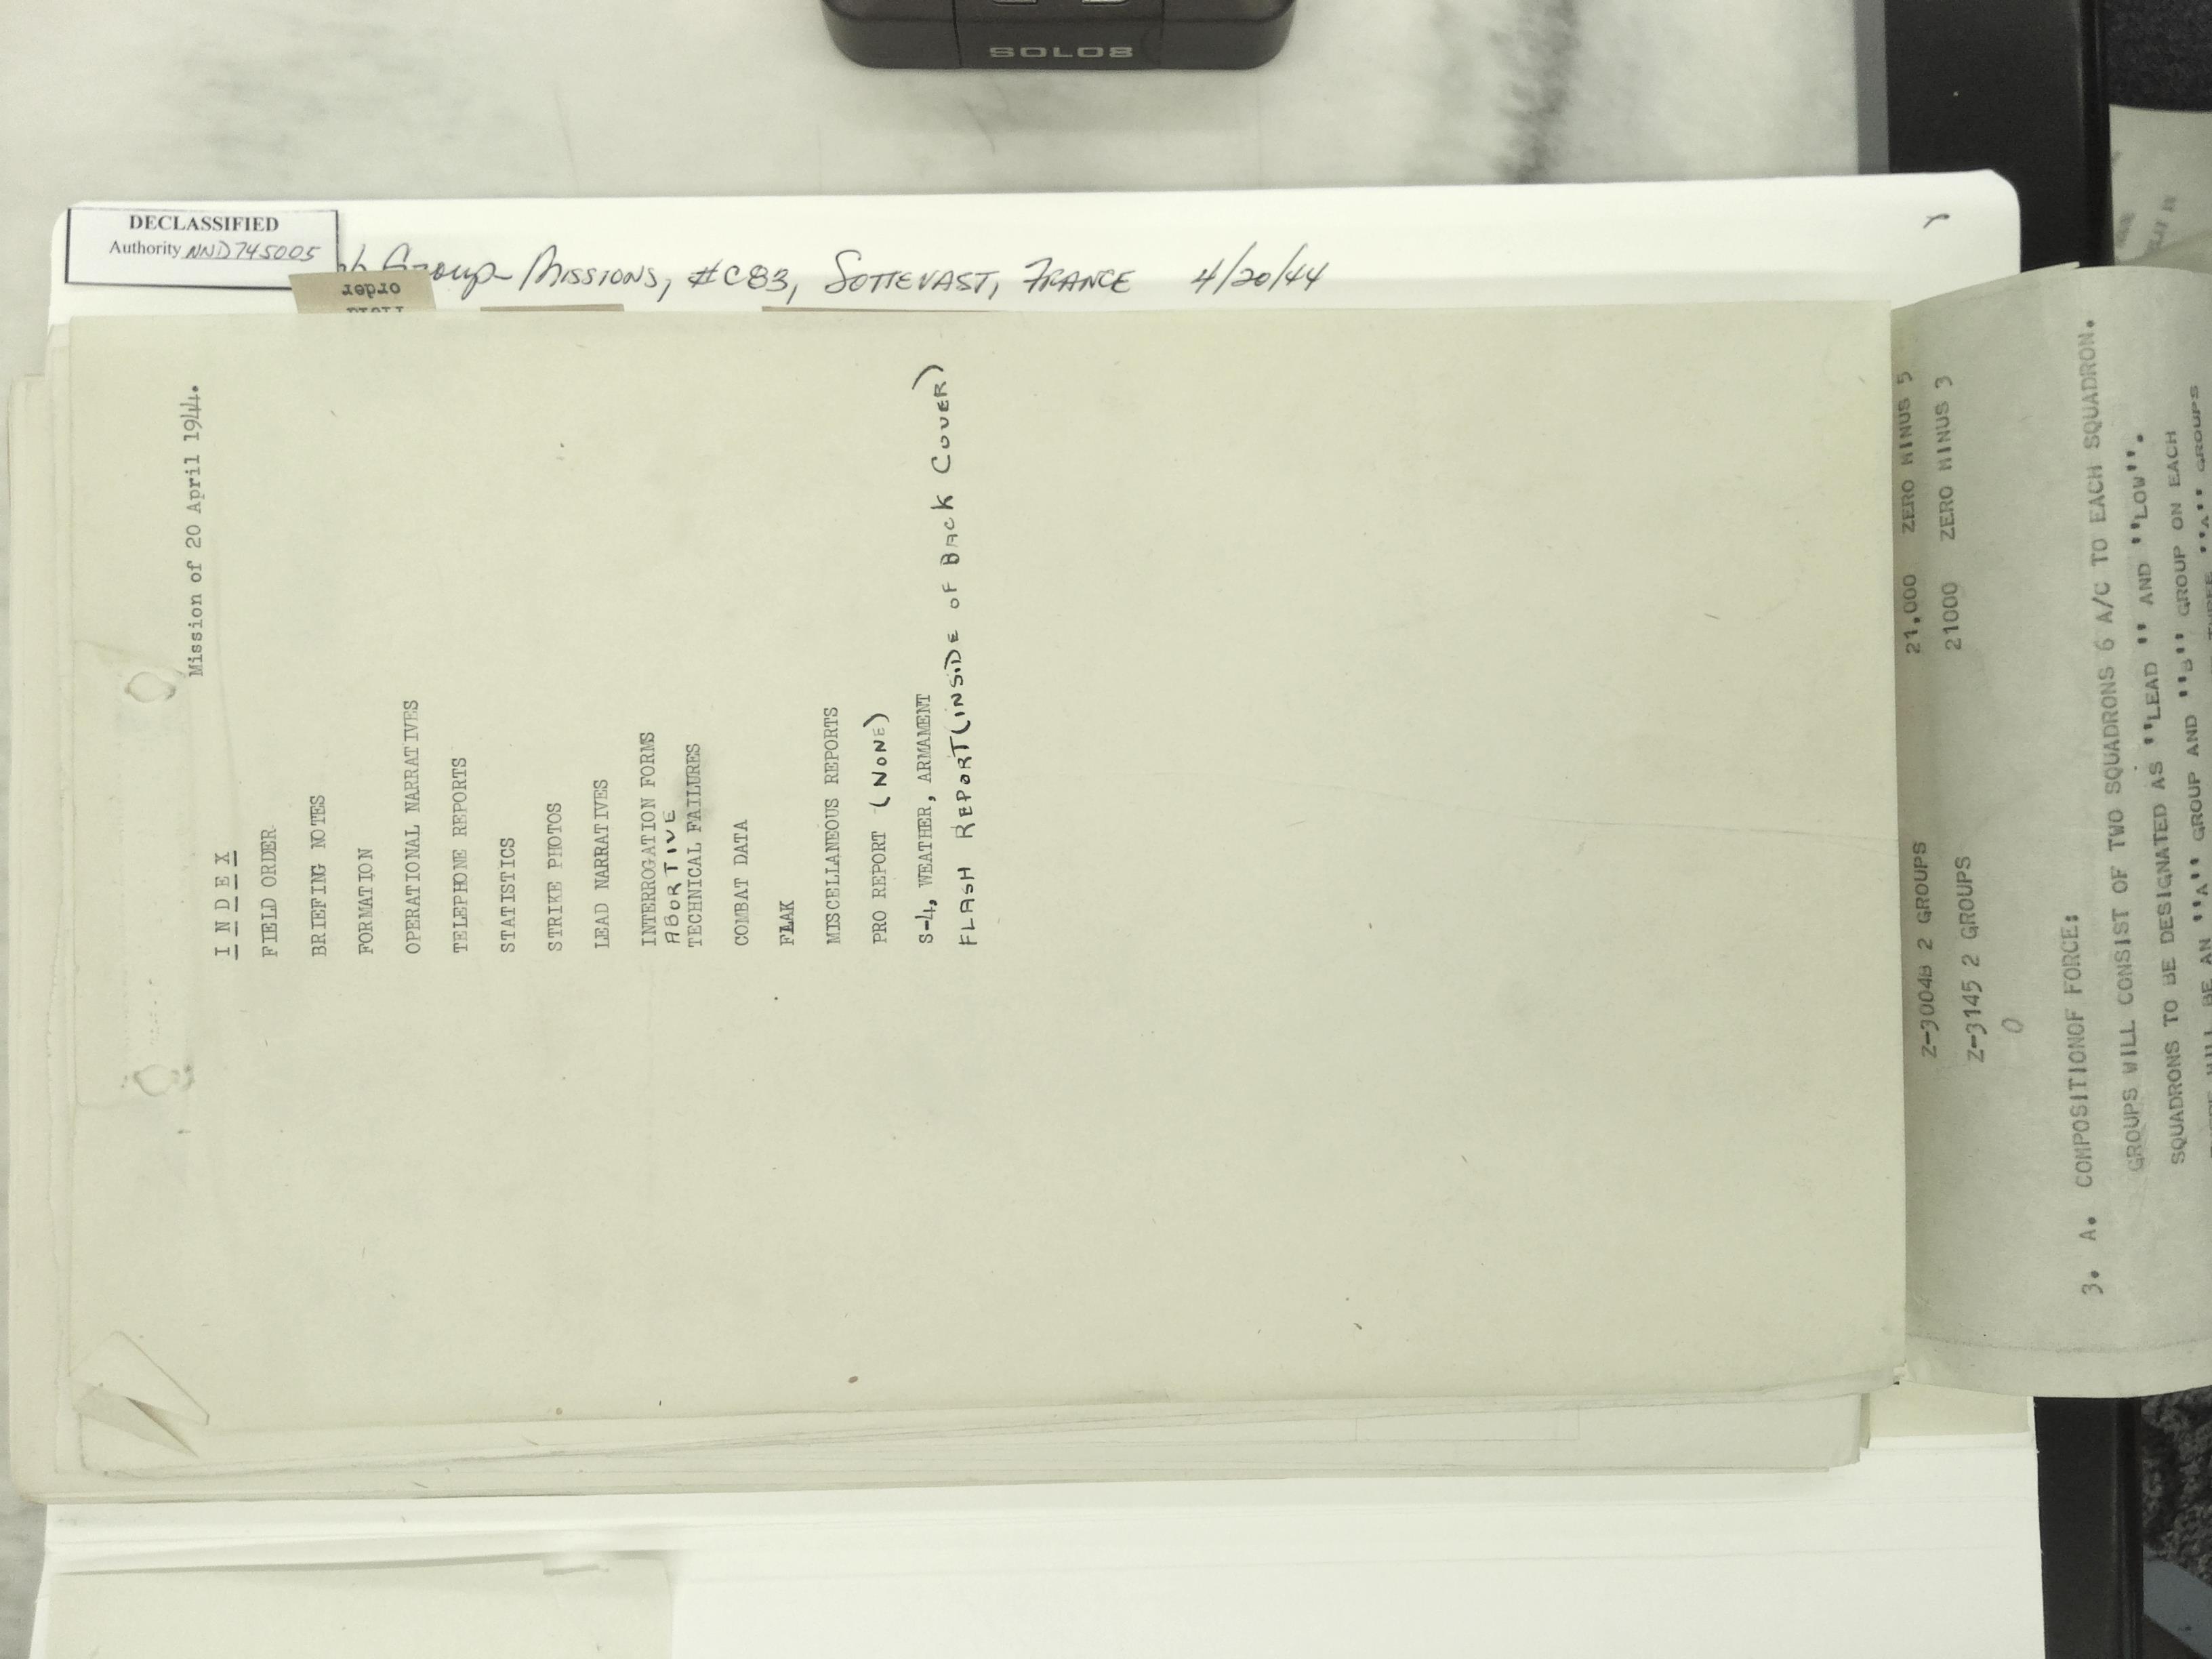 SOLO8
DECLASSIFIED
Authority NND745005
Group- Missions, #C83, Sottevast, France 4/20/44
order
Mission of 20 April 1944.
I N D E X
FIELD ORDER
BRIEFING NOTES
FORMATION
OPERATIONAL NARRATIVES
TELEPHONE REPORTS
STATISTICS
STRIKE PHOTOS
LEAD NARRATIVES
INTERROGATION FORMS
ABORTIVE
TECHNICAL FAILURES
COMBAT DATA
FLAK
MISCELLANEOUS REPORTS
PRO REPORT (NONE)
S-4, WEATHER, ARMAMENT
FLASH REPORT (INSIDE OF BACK COVER)
Z-3004B 2 GROUPS 21,000 ZERO MINUS 5
Z-3145 2 GROUPS 21000 ZERO MINUS 3
3. A. COMPOSITIONOF FORCE:
GROUPS WILL CONSIST OF TWO SQUADRONS 6 A/C TO EACH SQUADRON.
SQUADRONS TO BE DESIGNATED AS ''LEAD '' AND ''LOW''.
BE AN ''A'' GROUP AND ''B'' GROUP ON EACH
''A'' GROUPS